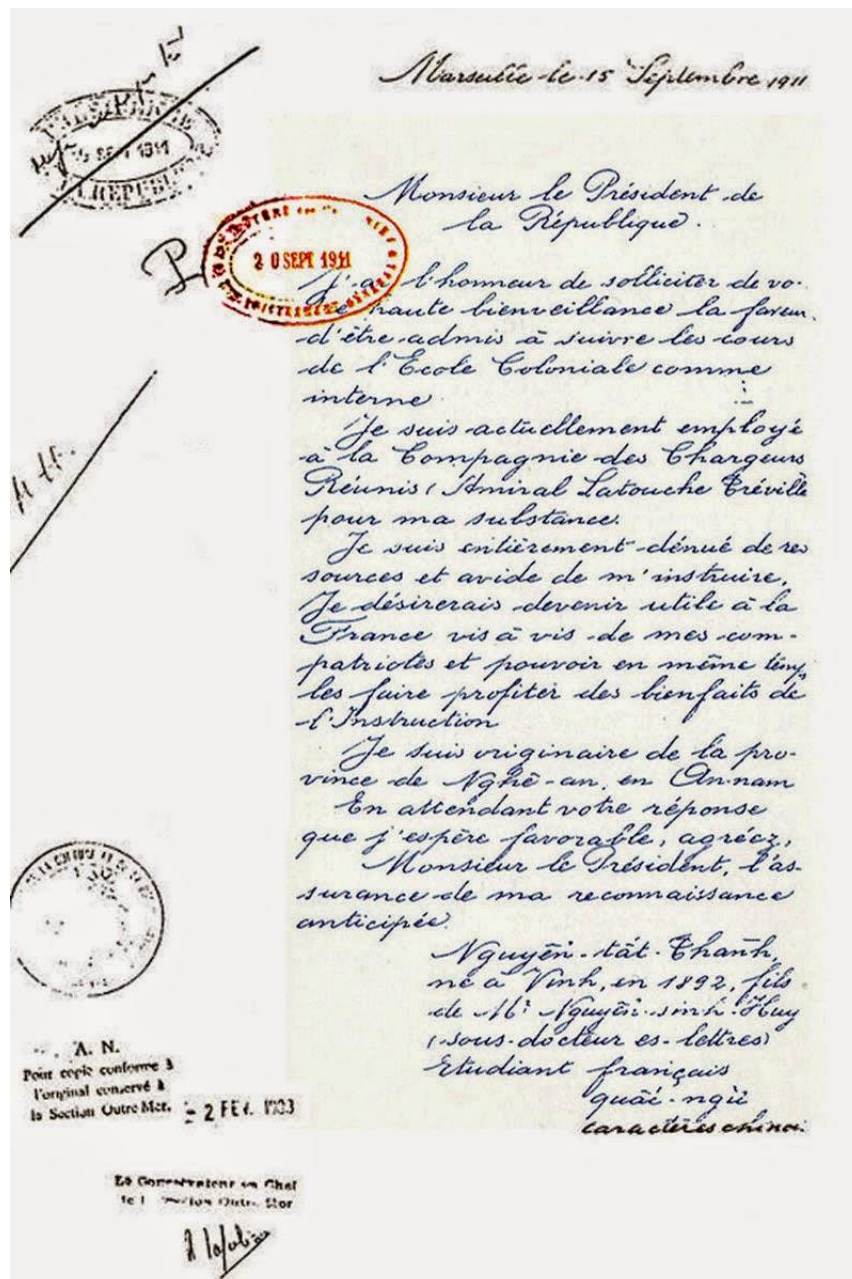 Marseille le 15 Septembre 1911
SEPT 1911
Monsieur le Président de
la République.
2 0 SEPT 1911
J'ai l'honneur de solliciter de vo-
tre haute bienveillance la faveur
d'être admis à suivre les cours
de l'Ecole Coloniale comme
interne
Je suis actuellement employé
à la Compagnie des Chargeurs
Réunis (Amiral Latouche Tréville
pour ma substance.
Je suis entièrement dénué de res
sources et avide de m'instruire.
Je désirerais devenir utile à la
France vis à vis de mes com-
patriotes et pouvoir en même temps
les faire profiter des bienfaits de
l'Instruction
Je suis originaire de la pro-
vince de Nghê-an, en An-nam
En attendant votre réponse
que j'espère favorable, agréez,
Monsieur le Président, l'as-
surance de ma reconnaissance
anticipée.
Nguyên-tât-Thanh,
né à Vinh, en 1892, fils
de Mr Nguyên-sinh-Huy
(sous-docteur es-lettres)
Etudiant français
quâc-ngu
caractères chinoi
A. N.
Pour copie conforme à
l'original conservé à
la Section Outre Mer.
- 2 FEV.
Le Conservateur en Chef
Section Outre Mer